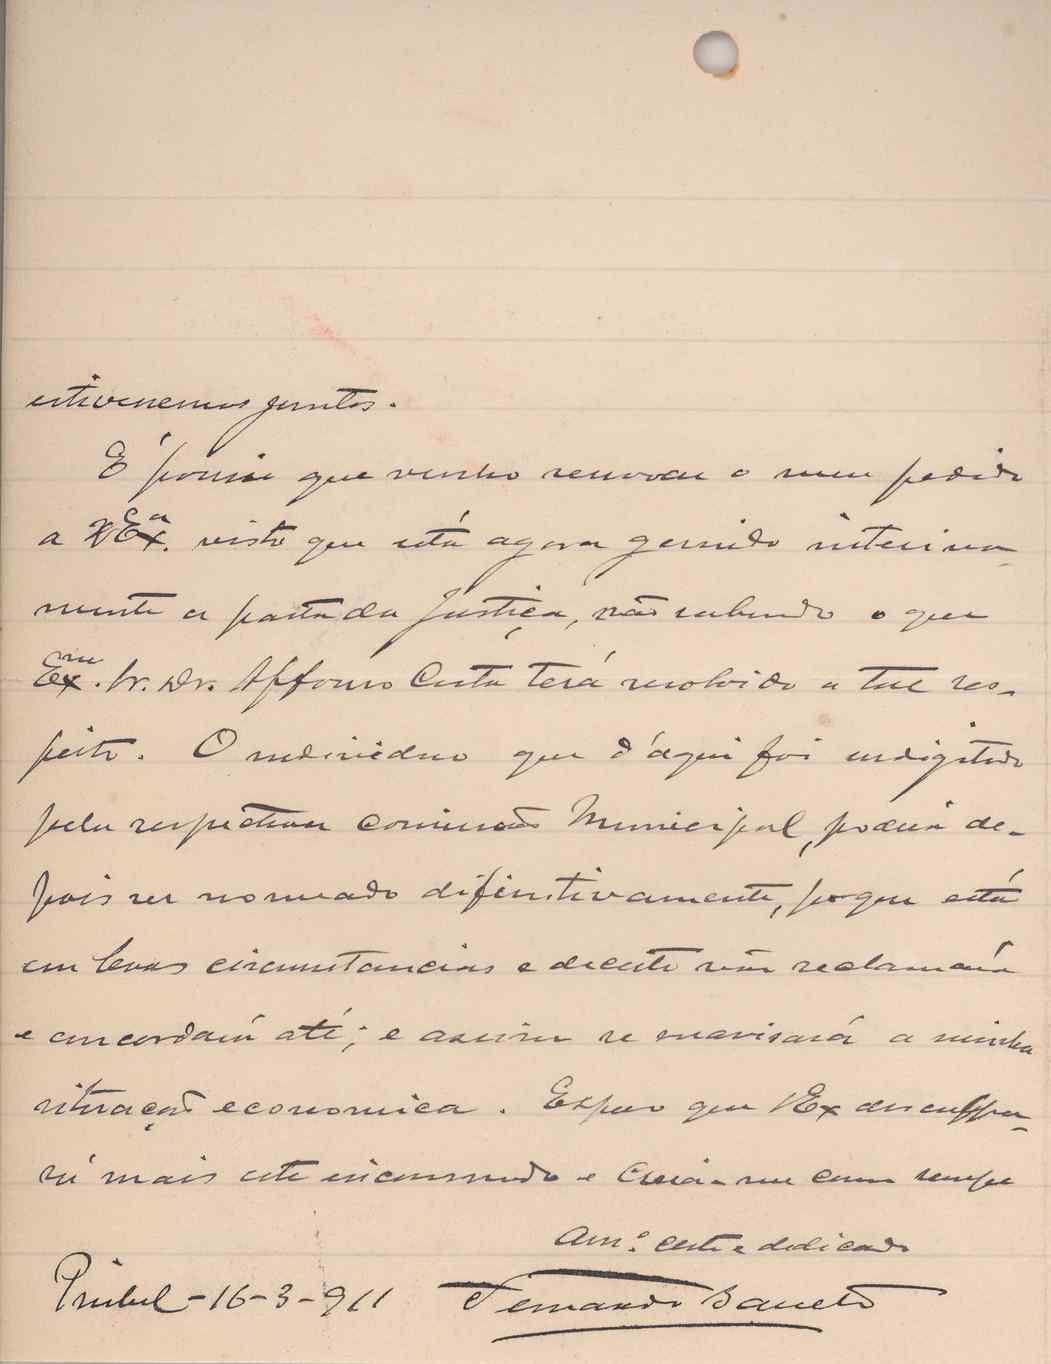 estivenemos juntos.
É porisso que venho renovar o meu pedido
a VEx.ª visto que está agora gerindo interina-
mente a pasta da Justiça, não sabendo o que
Ex.mo Sr. Dr. Affonso Costa terá resolvido a tal res-
peito. O individuo que d'aqui foi indigitado
pela respectiva comissão Municipal, poderá de-
pois ser nomeado difinitivamente, porque está
em boas circunstancias e decerto não reclamará
e concordará até; e assim se suavisará a minha
situação economica. Espero que VEx desculpa-
rá mais este incommodo e creia-me como sempre
Am.º certo e dedicado
-16-3-911 Fernando